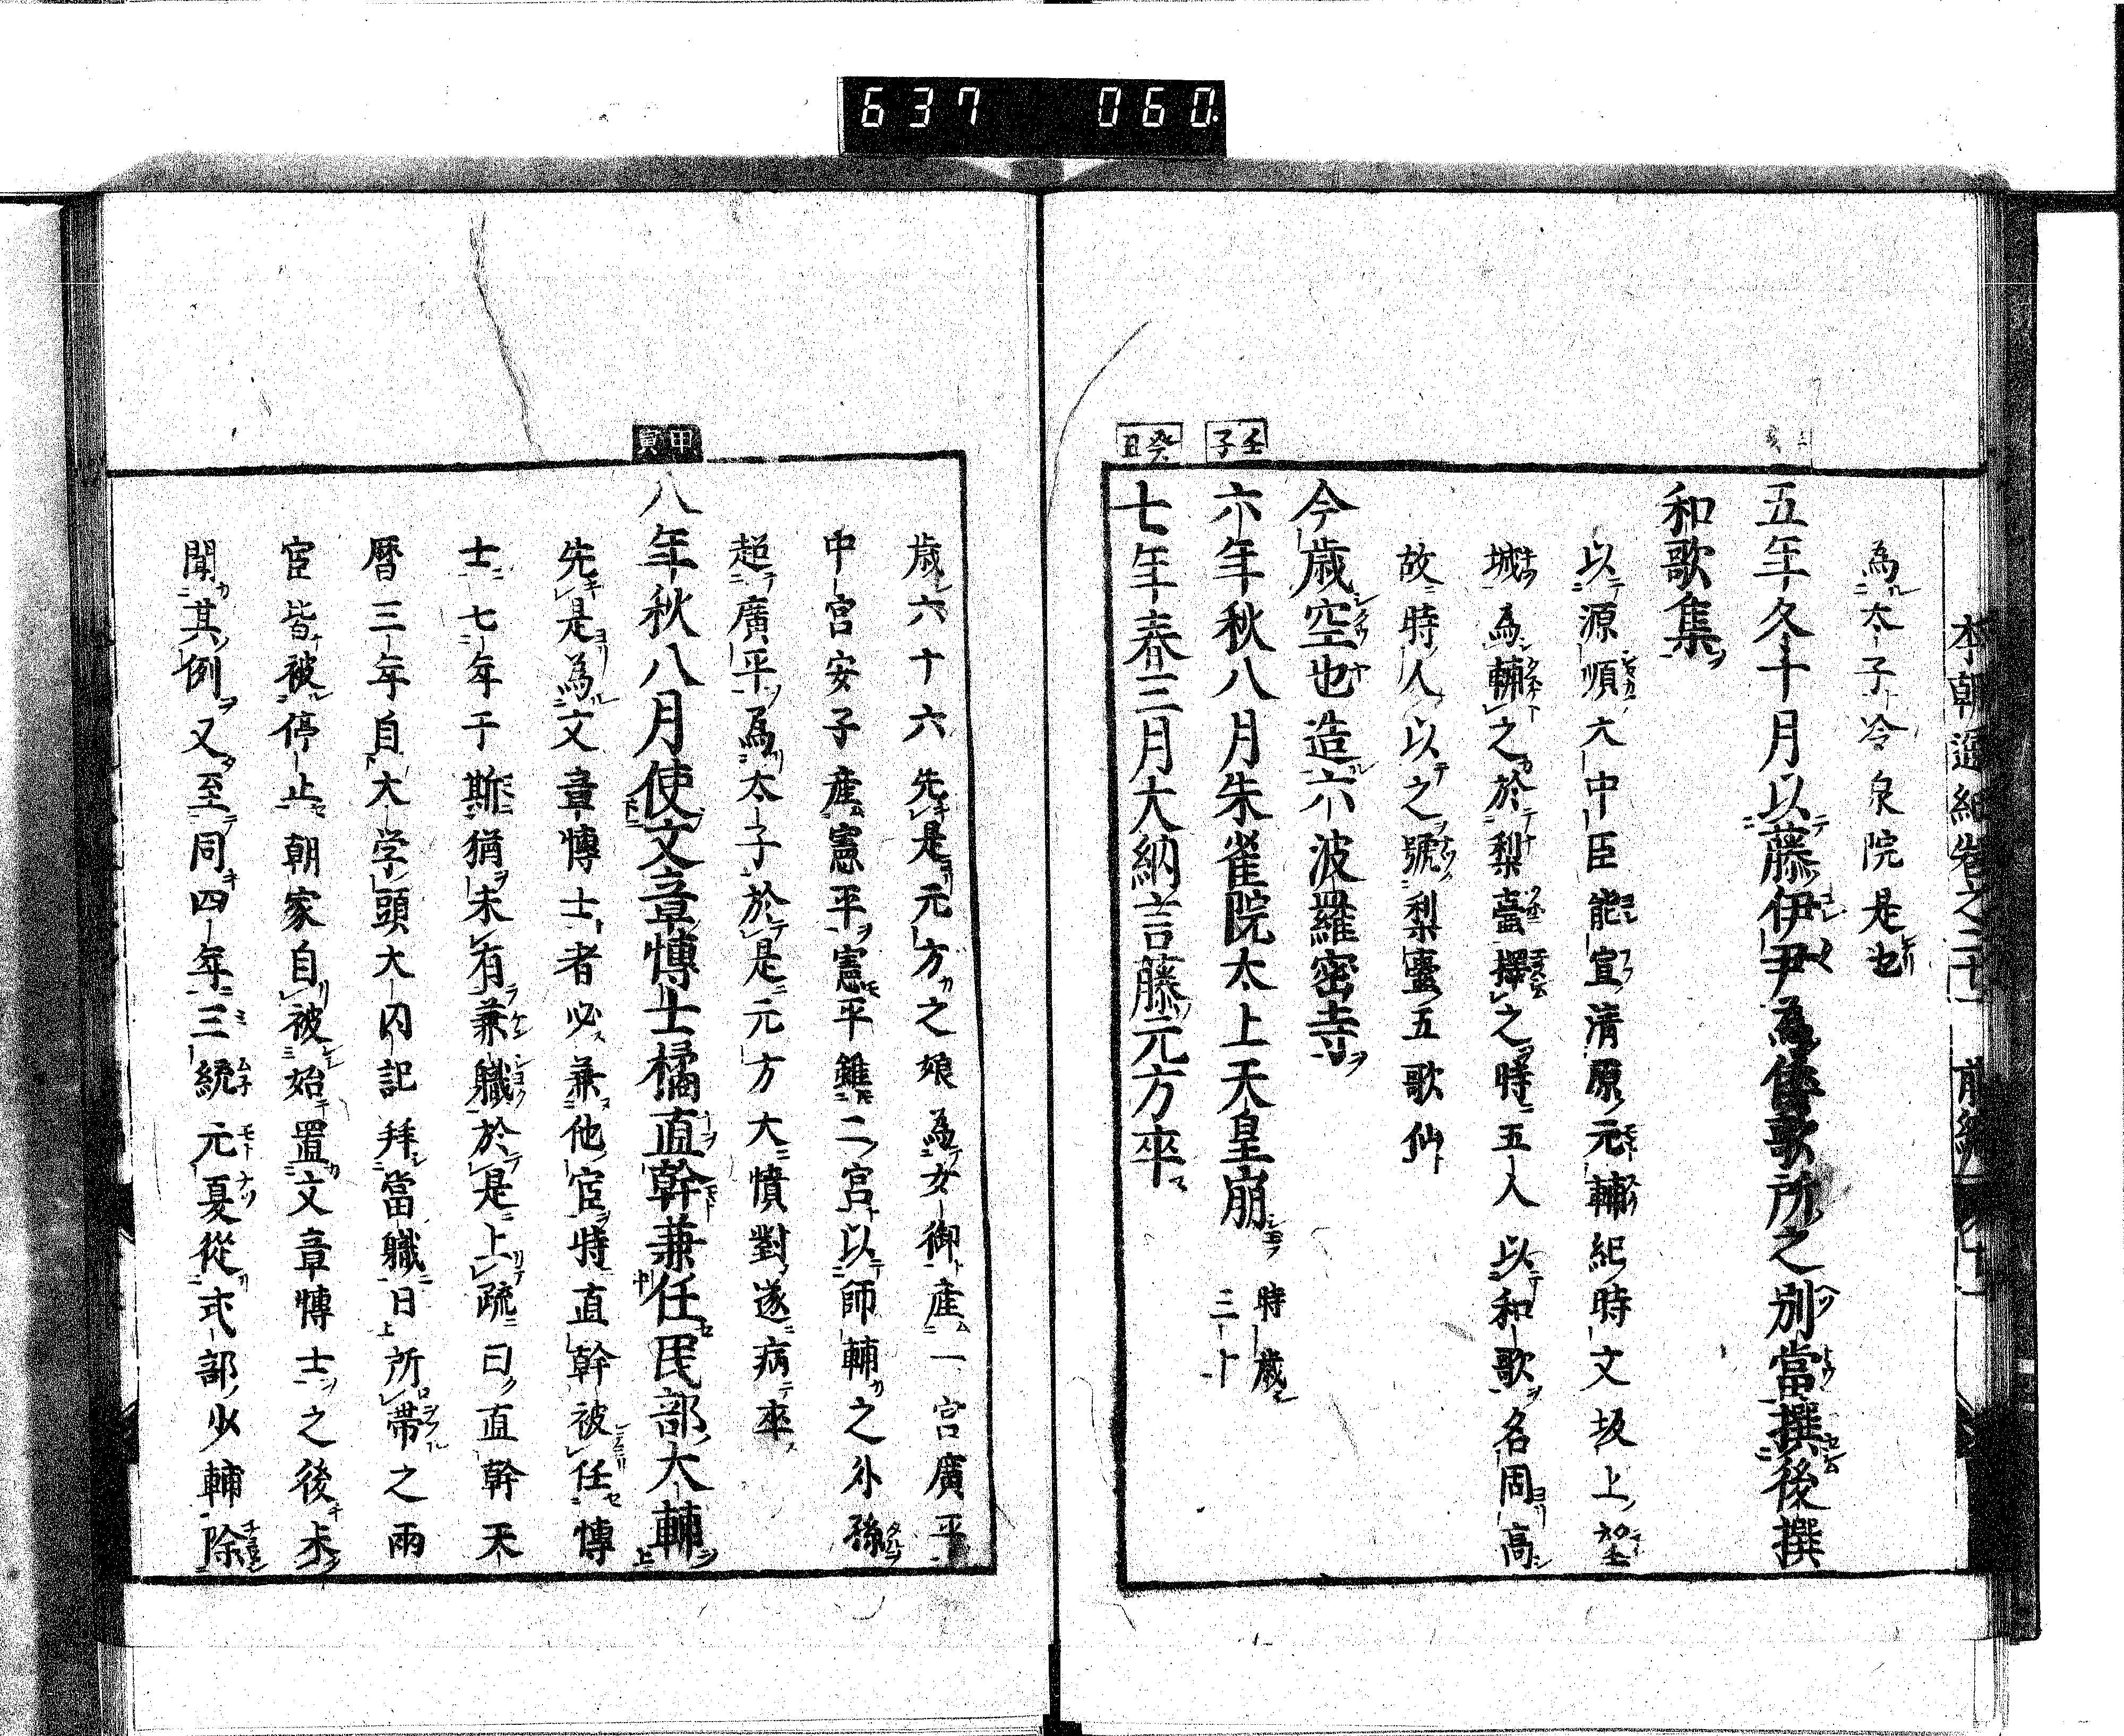 637 060
本朝通紀巻之二十一 前編
為太子冷泉院是也
五年冬十月以藤伊尹為倭歌所之別當撰後撰
和歌集
以源順大中臣能宣清原元輔紀時文坂上望
城為輔之於梨壷擇之時五人以和歌名周高
故時人以之號梨壷五歌仙
今歳空也造六波羅密寺
壬子
六年秋八月朱雀院太上天皇崩 時歳三十
癸丑
七年春三月大納言藤元方卒
歳六十六先是元方之娘為女御産一宮廣平
中宮安子産憲平憲平雖二宮以師輔之外孫
超廣平為太子於是元方大憤對遂病卒
甲寅
八年秋八月使文章博士橘直幹兼任民部大輔
先是為文章博士者必兼他官時直幹被任博
士七年于斯猶未有兼職於是上疏曰直幹天
暦三年自大学頭大内記拜當職日所帯之兩
官皆被停止朝家自被始置文章博士之後未
聞其例又至同四年三統元夏從式部少輔除